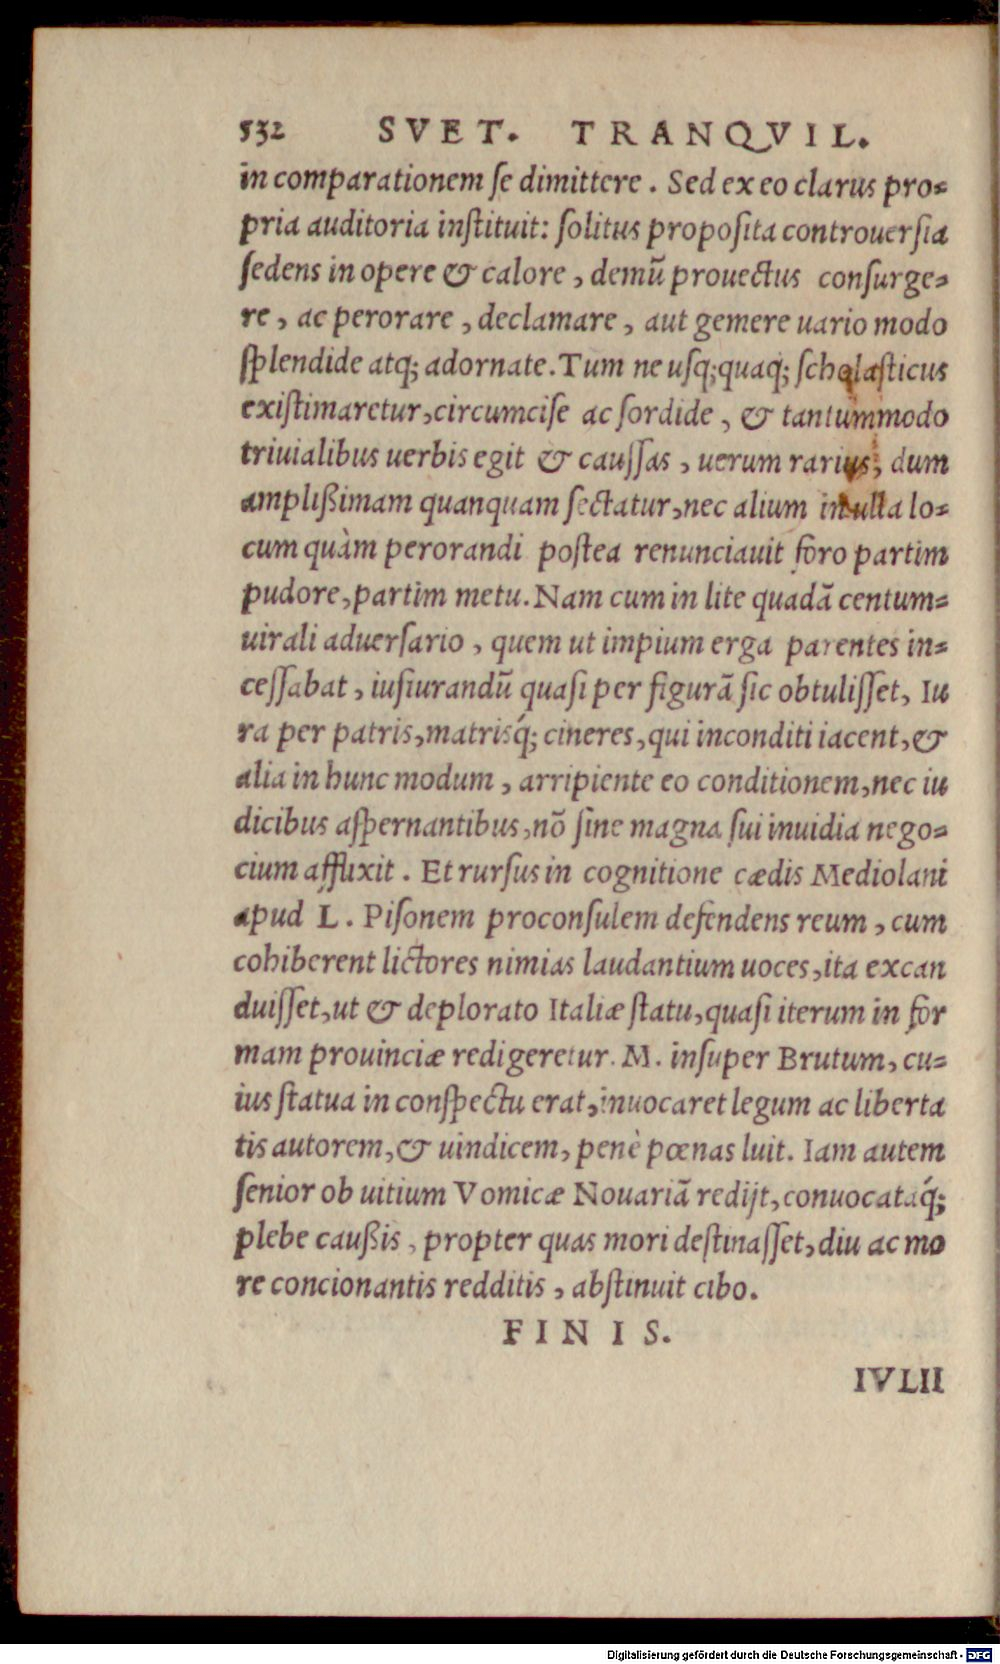 532 SVET. TRANQVIL.
in comparationem se dimittere. Sed ex eo clarus pro-
pria auditoria instituit: solitus proposita controuersia
sedens in opere & calore, demũ prouectus consurge-
re, ac perorare, declamare, aut gemere uario modo
splendide atq; adornate. Tum ne usq;quaq; scholasticus
existimaretur, circumcise ac sordide, & tantummodo
triuialibus uerbis egit & caussas, uerum rarius, dum
amplißimam quanquam sectatur, nec alium in ulla lo-
cum quàm perorandi postea renunciauit foro partim
pudore, partim metu. Nam cum in lite quadã centum-
uirali aduersario, quem ut impium erga parentes in-
cessabat, iusiurandũ quasi per figurã sic obtulisset, Iu
ra per patris, matrisq́; cineres, qui inconditi iacent, &
alia in hunc modum, arripiente eo conditionem, nec iu
dicibus aspernantibus, nõ sine magna sui inuidia nego-
cium afflixit. Et rursus in cognitione cædis Mediolani
apud L. Pisonem proconsulem defendens reum, cum
cohiberent lictores nimias laudantium uoces, ita excan
duisset, ut & deplorato Italiæ statu, quasi iterum in for
mam prouinciæ redigeretur. M. insuper Brutum, cu-
ius statua in conspectu erat, inuocaret legum ac liberta
tis autorem, & uindicem, penè pœnas luit. Iam autem
senior ob uitium Vomicæ Nouariã redijt, conuocataq́;
plebe caußis, propter quas mori destinasset, diu ac mo
re concionantis redditis, abstinuit cibo.
FINIS.
IVLII
Digitalisierung gefördert durch die Deutsche Forschungsgemeinschaft - DFG